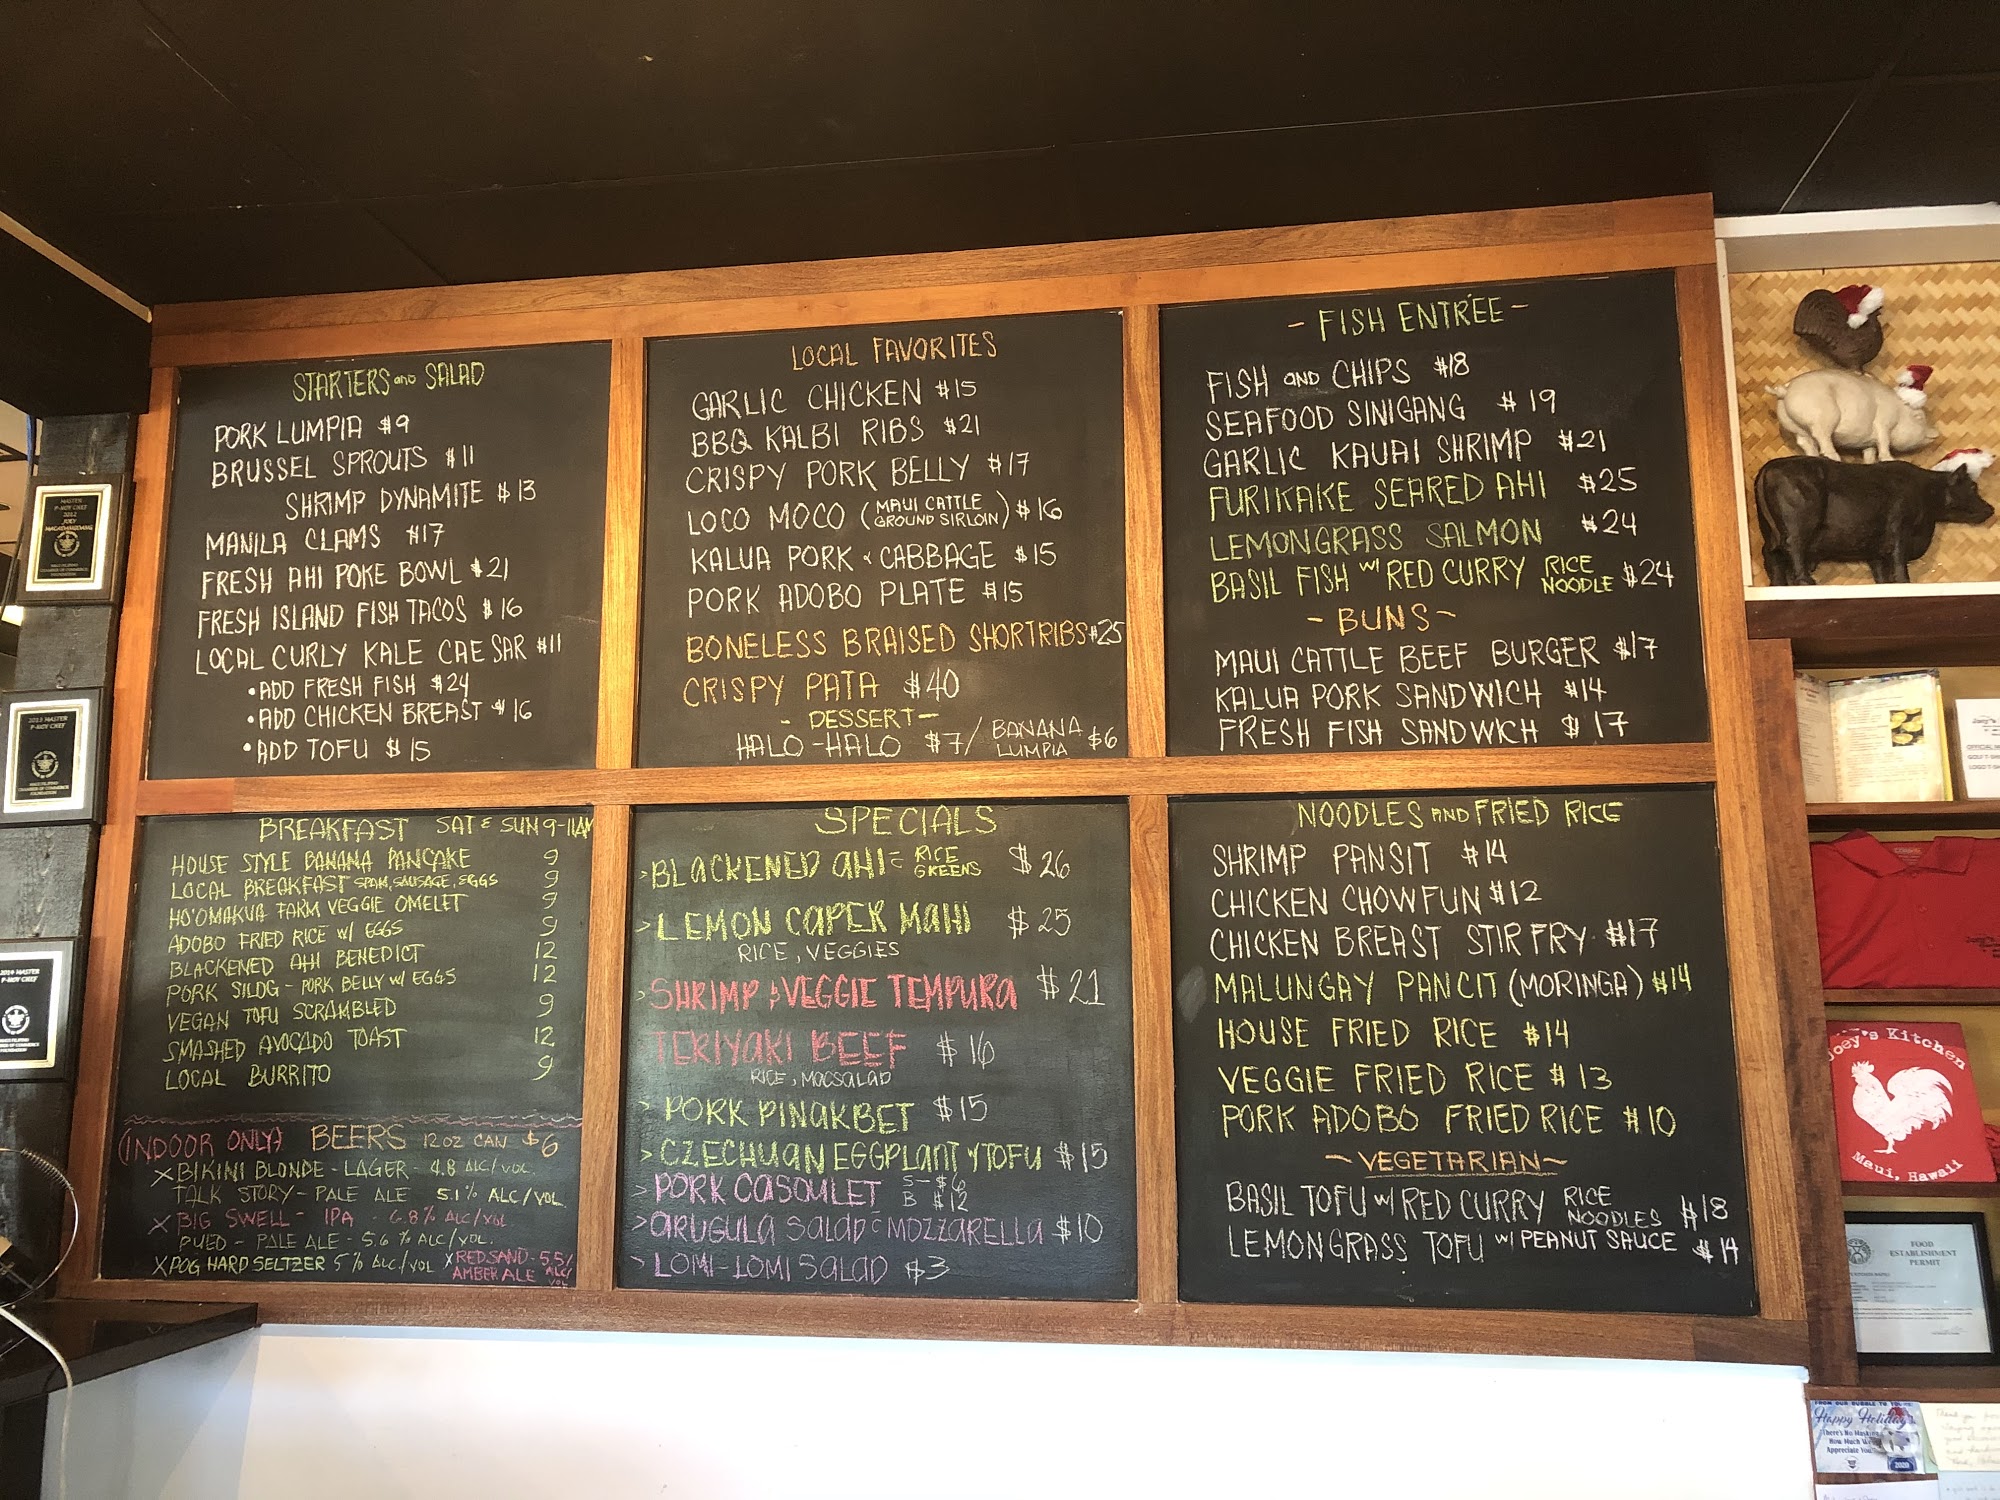 STARTERS AND SALAD
PORK LUMPIA $9
BRUSSEL SPROUTS $11
SHRIMP DYNAMITE $13
MANILA CLAMS $17
FRESH AHI POKE BOWL $21
FRESH ISLAND FISH TACOS $16
LOCAL CURLY KALE CAESAR $11
• ADD FRESH FISH $24
• ADD CHICKEN BREAST $16
• ADD TOFU $15
LOCAL FAVORITES
GARLIC CHICKEN $15
BBQ KALBI RIBS $21
CRISPY PORK BELLY $17
LOCO MOCO (MAUI CATTLE GROUND SIRLOIN) $16
KALUA PORK & CABBAGE $15
PORK ADOBO PLATE $15
BONELESS BRAISED SHORTRIBS $25
CRISPY PATA $40
- DESSERT -
HALO-HALO $7 / BANANA LUMPIA $6
- FISH ENTRÉE -
FISH AND CHIPS $18
SEAFOOD SINIGANG $19
GARLIC KAUAI SHRIMP $21
FURIKAKE SEARED AHI $25
LEMONGRASS SALMON $24
BASIL FISH W/ RED CURRY RICE NOODLE $24
- BUNS -
MAUI CATTLE BEEF BURGER $17
KALUA PORK SANDWICH $14
FRESH FISH SANDWICH $17
BREAKFAST SAT & SUN 9-11AM
HOUSE STYLE BANANA PANCAKE 9
LOCAL BREAKFAST SPAM, SAUSAGE, EGGS 9
HO'OMAKUA FARM VEGGIE OMELET 9
ADOBO FRIED RICE W/ EGGS 9
BLACKENED AHI BENEDICT 12
PORK SILOG - PORK BELLY W/ EGGS 12
VEGAN TOFU SCRAMBLED 9
SMASHED AVOCADO TOAST 12
LOCAL BURRITO 9
(INDOOR ONLY) BEERS 12 OZ CAN $6
X BIKINI BLONDE - LAGER - 4.8 ALC/VOL.
TALK STORY - PALE ALE 5.1% ALC/VOL
X BIG SWELL - IPA - 6.8% ALC/VOL
PUEO - PALE ALE - 5.6 % ALC/VOL.
X POG HARD SELTZER 5 % ALC/VOL X RED SAND - 5.5/ AMBER ALE ALC/VOL
SPECIALS
> BLACKENED AHI = RICE GREENS $26
> LEMON CAPER MAHI $25
RICE, VEGGIES
> SHRIMP & VEGGIE TEMPURA $21
TERIYAKI BEEF $16
RICE, MACSALAD
> PORK PINAKBET $15
> CZECHUAN EGGPLANT Y TOFU $15
> PORK CASOULET S - $6 B $12
> ARUGULA SALAD C MOZZARELLA $10
> LOMI-LOMI SALAD $3
NOODLES AND FRIED RICE
SHRIMP PANSIT $14
CHICKEN CHOWFUN $12
CHICKEN BREAST STIR FRY $17
MALUNGAY PANCIT (MORINGA) $14
HOUSE FRIED RICE $14
VEGGIE FRIED RICE $13
PORK ADOBO FRIED RICE $10
- VEGETARIAN -
BASIL TOFU W/ RED CURRY RICE NOODLES $18
LEMONGRASS TOFU W/ PEANUT SAUCE $14
MASTER
P-NOY CHEF
2012
JOEY
MACADANGDANG
2013 MASTER
P-NOY CHEF
2019 MASTER
P-NOY CHEF
Joey's Kitchen
Maui, Hawaii
FOOD
ESTABLISHMENT
PERMIT
Happy Holidays
There's No Mask
How Much We
Appreciate You
2020